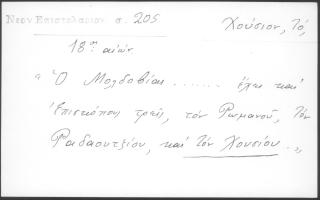 Νεον Επιστολαριον σ. 205
Χούσιον, Τό,
18ος αἰών
"Ὁ Μολδαβίας ....... ἔχει καὶ
Ἐπισκόπους τρεῖς, τὸν Ρωμανοῦ, τὸν
Ραδαουτζίου, καὶ τὸν Χουσίου..."